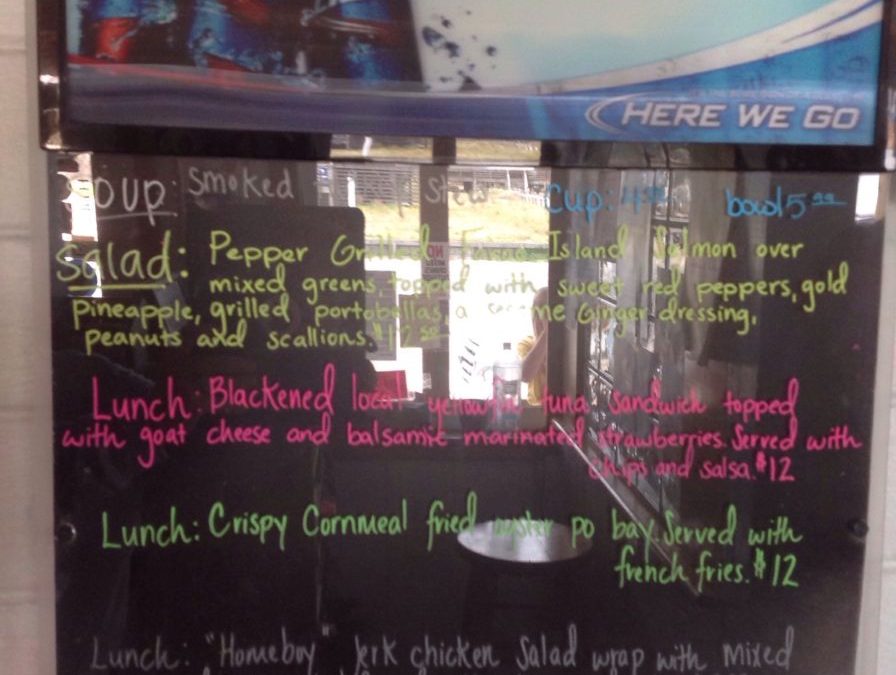 HERE WE GO
Soup: Smoked Stew Cup: bowl 5
Salad: Pepper Grilled Faroe Island Salmon over
mixed greens, topped with sweet red peppers, gold
pineapple, grilled portobellas, a Ginger dressing,
peanuts and scallions.
Lunch: Blackened local yellowfin tuna sandwich topped
with goat cheese and balsamic marinated strawberries. Served with
chips and salsa. $12
Lunch: Crispy Cornmeal fried oyster po boy. Served with
french fries. $12
Lunch: "Homeboy" Jerk chicken Salad wrap with Mixed